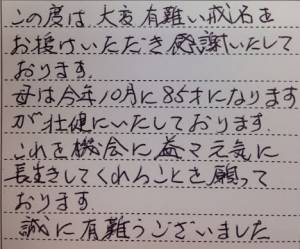 この度は大変有難い戒名を
お授けいただき感謝いたして
おります.
母は今年10月に85才になります
が壮健にいたしております.
これを機会に益々元気に
長生きしてくれることを願って
おります
誠に有難うございました